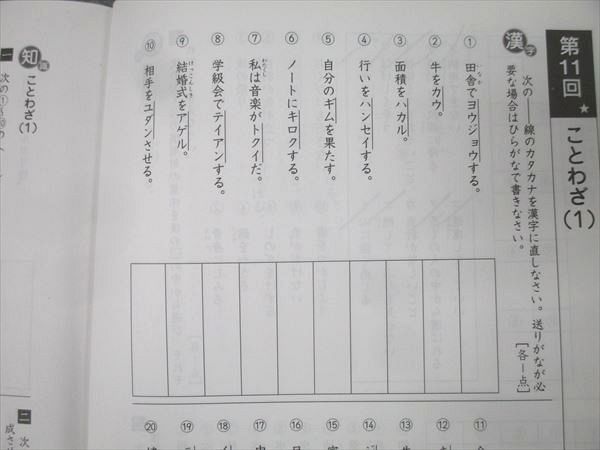 第11回 ★ ことわざ(1)
漢字
次の――線のカタカナを漢字に直しなさい。送りがなが必
要な場合はひらがなで書きなさい。
[各1点]
① 田舎でヨウジョウする。
いなか
② 牛をカウ。
③ 面積をハカル。
④ 行いをハンセイする。
⑤ 自分のギムを果たす。
⑥ ノートにキロクする。
⑦ 私は音楽がトクイだ。
わたし
⑧ 学級会でテイアンする。
⑨ 結婚式をアゲル。
けっこんしき
⑩ 相手をユダンさせる。
⑪
⑫
⑬
⑭
⑮
⑯
⑰
⑱
⑲
⑳
知識 ことわざ(1)
一 次の①
二 次
成さ